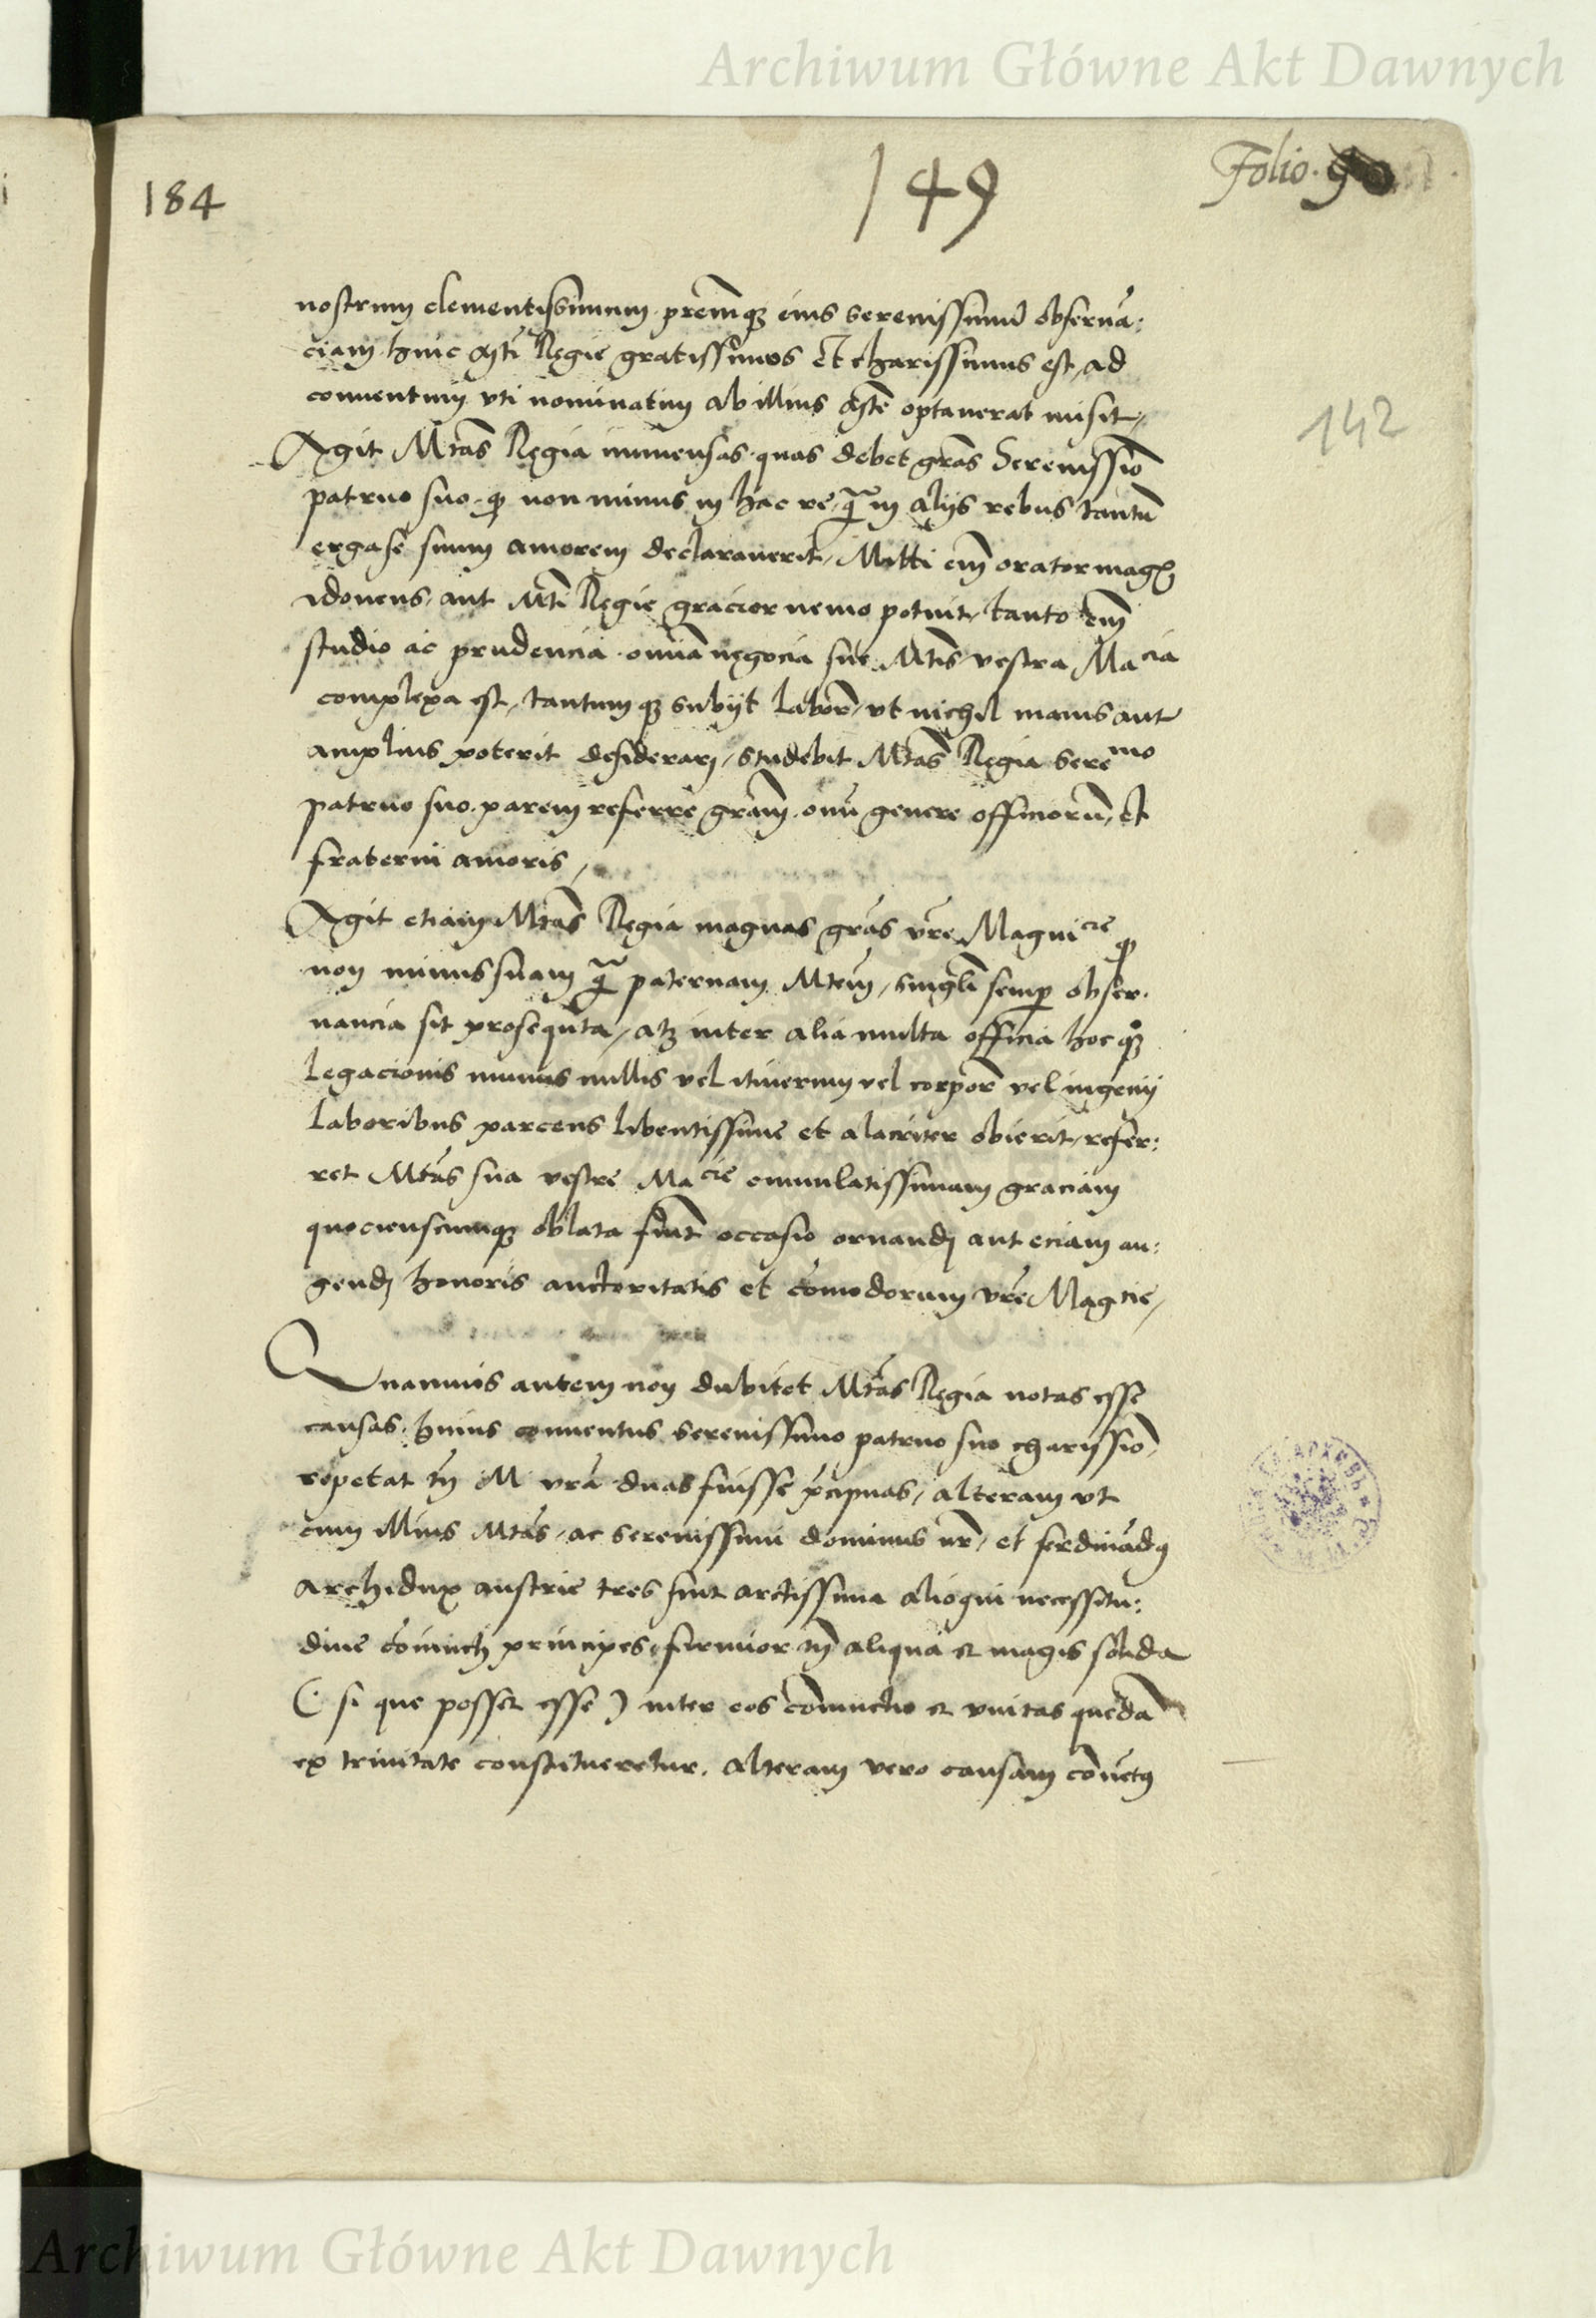 Archiwum Główne Akt Dawnych
184
149
Folio. 90
142
nostrum clementissimum. prēmq3 eius serenissimū obserua:
ciam. huic Mti Regie gratissimus Et charissimus est, ad
conuentum vti nominatim ab illius Mte optauerat misit,
Agit Mtas Regia immensas. quas debet gras Serenissio
patruo suo. qꝫ non minus in hac re. qm in alijs rebus tantū
ergase suum amorem declarauerit, Mitti em orator mag
idoneus, aut Mti Regie gracior nemo potuit, tanto em
studio ac prudencia. omnia negocia sue Mtis vestra Macia
complexa est, tantum q3 subijt labor, vt nichil maius aut
amplius poterit desiderari, studebit Mtas Regia seremo
patruo suo. parem referre gram. omni genere officiorū, et
fraterni amoris,
Agit etiam Mtas Regia magnas gras vre Magnicie qꝫ
non minus suam qm paternam Mtem, singli semp obser.
uancia sit prosequta, atq3 inter alia multa officia hoc qꝫ
legacionis munus nullis vel itinerum vel corpor vel ingenij
laboribus parcens libentissime et alacriter obierit, refer:
ret Mtas sua vestre Macie cumulatissimam graciam
quocienscumq3 oblata fuit occasio ornandi aut eciam au:
gendi honoris auctoritatis et comodorum vre Magcie,
Quamuis autem non dubitet Mtas Regia notas esse
causas. huius conuentus serenissimo patruo suo charissio,
repetat tn M vra duas fuisse pcipuas, alteram vt
cum illius Mtas, ac serenissimi dominus nr, et ferdinādꝰ
archidux austrie tres sint arctissima alioqui necessitu:
dine coiuncti principes, firmior tn aliqua et magis solida
(: si que posset esse) inter eos coniunctio et vnitas quedā
ex trinitate constitueretur. alteram vero causam cōuētꝰ
Archiwum Główne Akt Dawnych